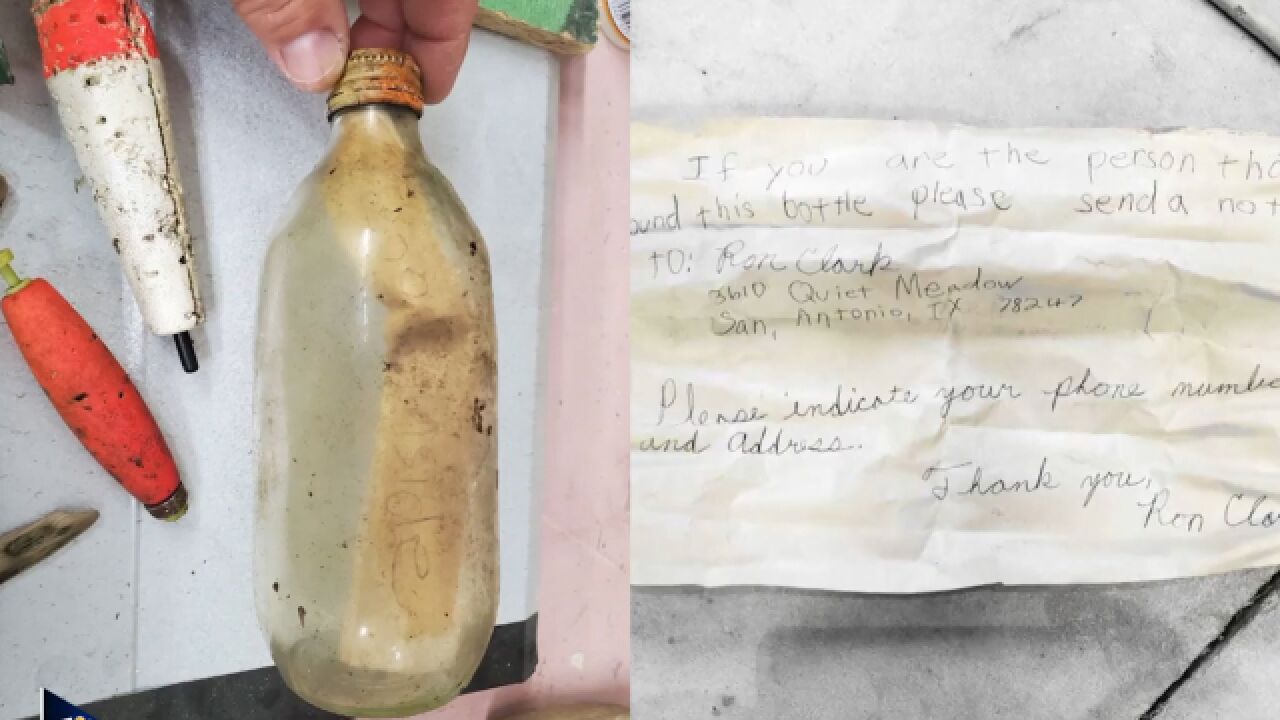 If you are the person tha
ound this bottle please send a not
to: Ron Clark
3610 Quiet Meadow
San, Antonio, TX 78247
Please indicate your phone numbe
and Address.
Thank you,
Ron Cla